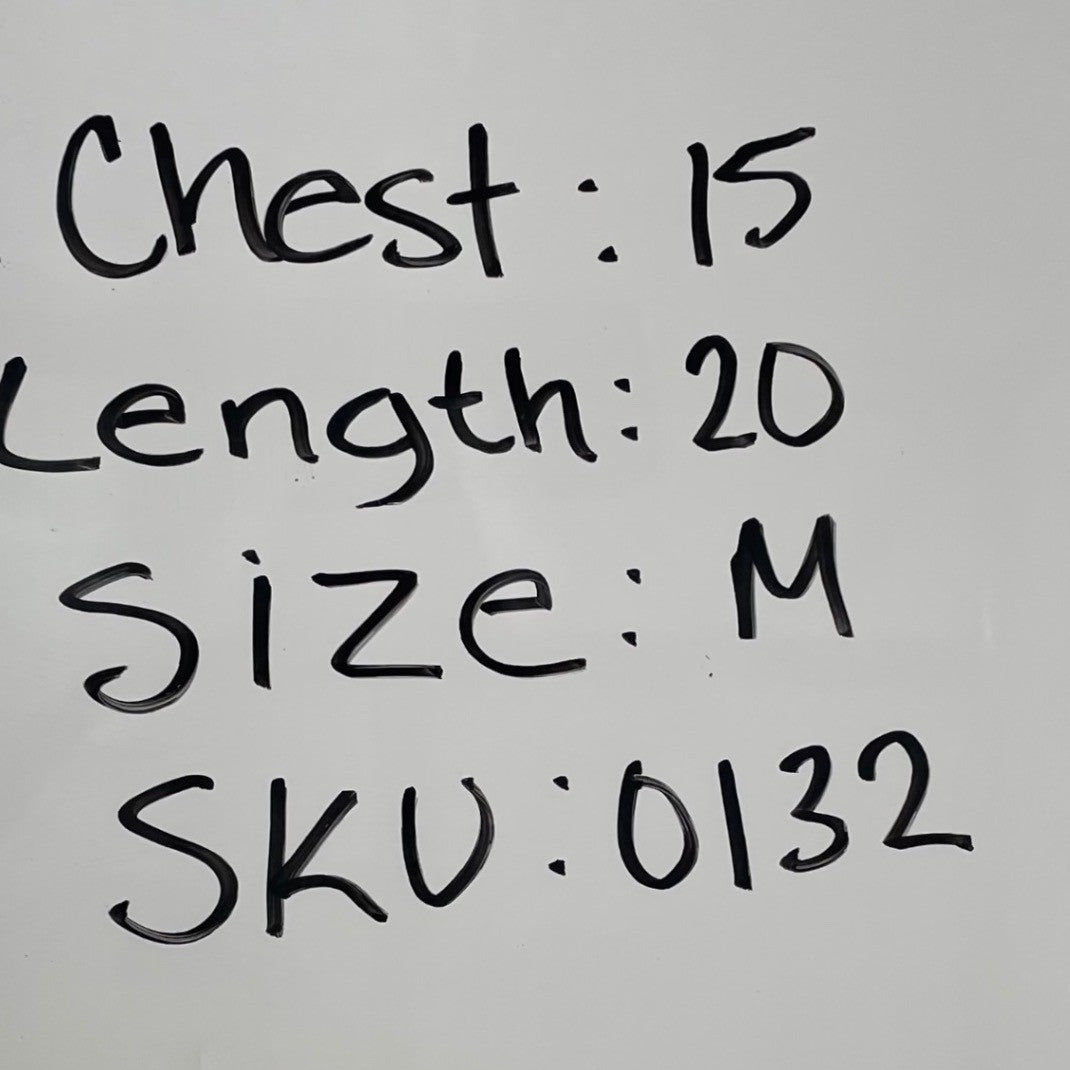 Chest: 15
Length: 20
Size: M
SKU: 0132